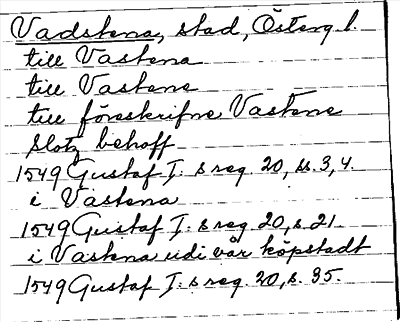 Vadstena, stad, Österg. l.
till Vastena
till Vastene
till föreskrifne Vastene
slotz behoff
1549 Gustaf I:s reg. 20, ss. 3, 4.
i Vastena
1549 Gustaf I:s reg. 20, s. 21
i Vastena udi vår köpstadt
1549 Gustaf I:s reg. 20, s. 35.